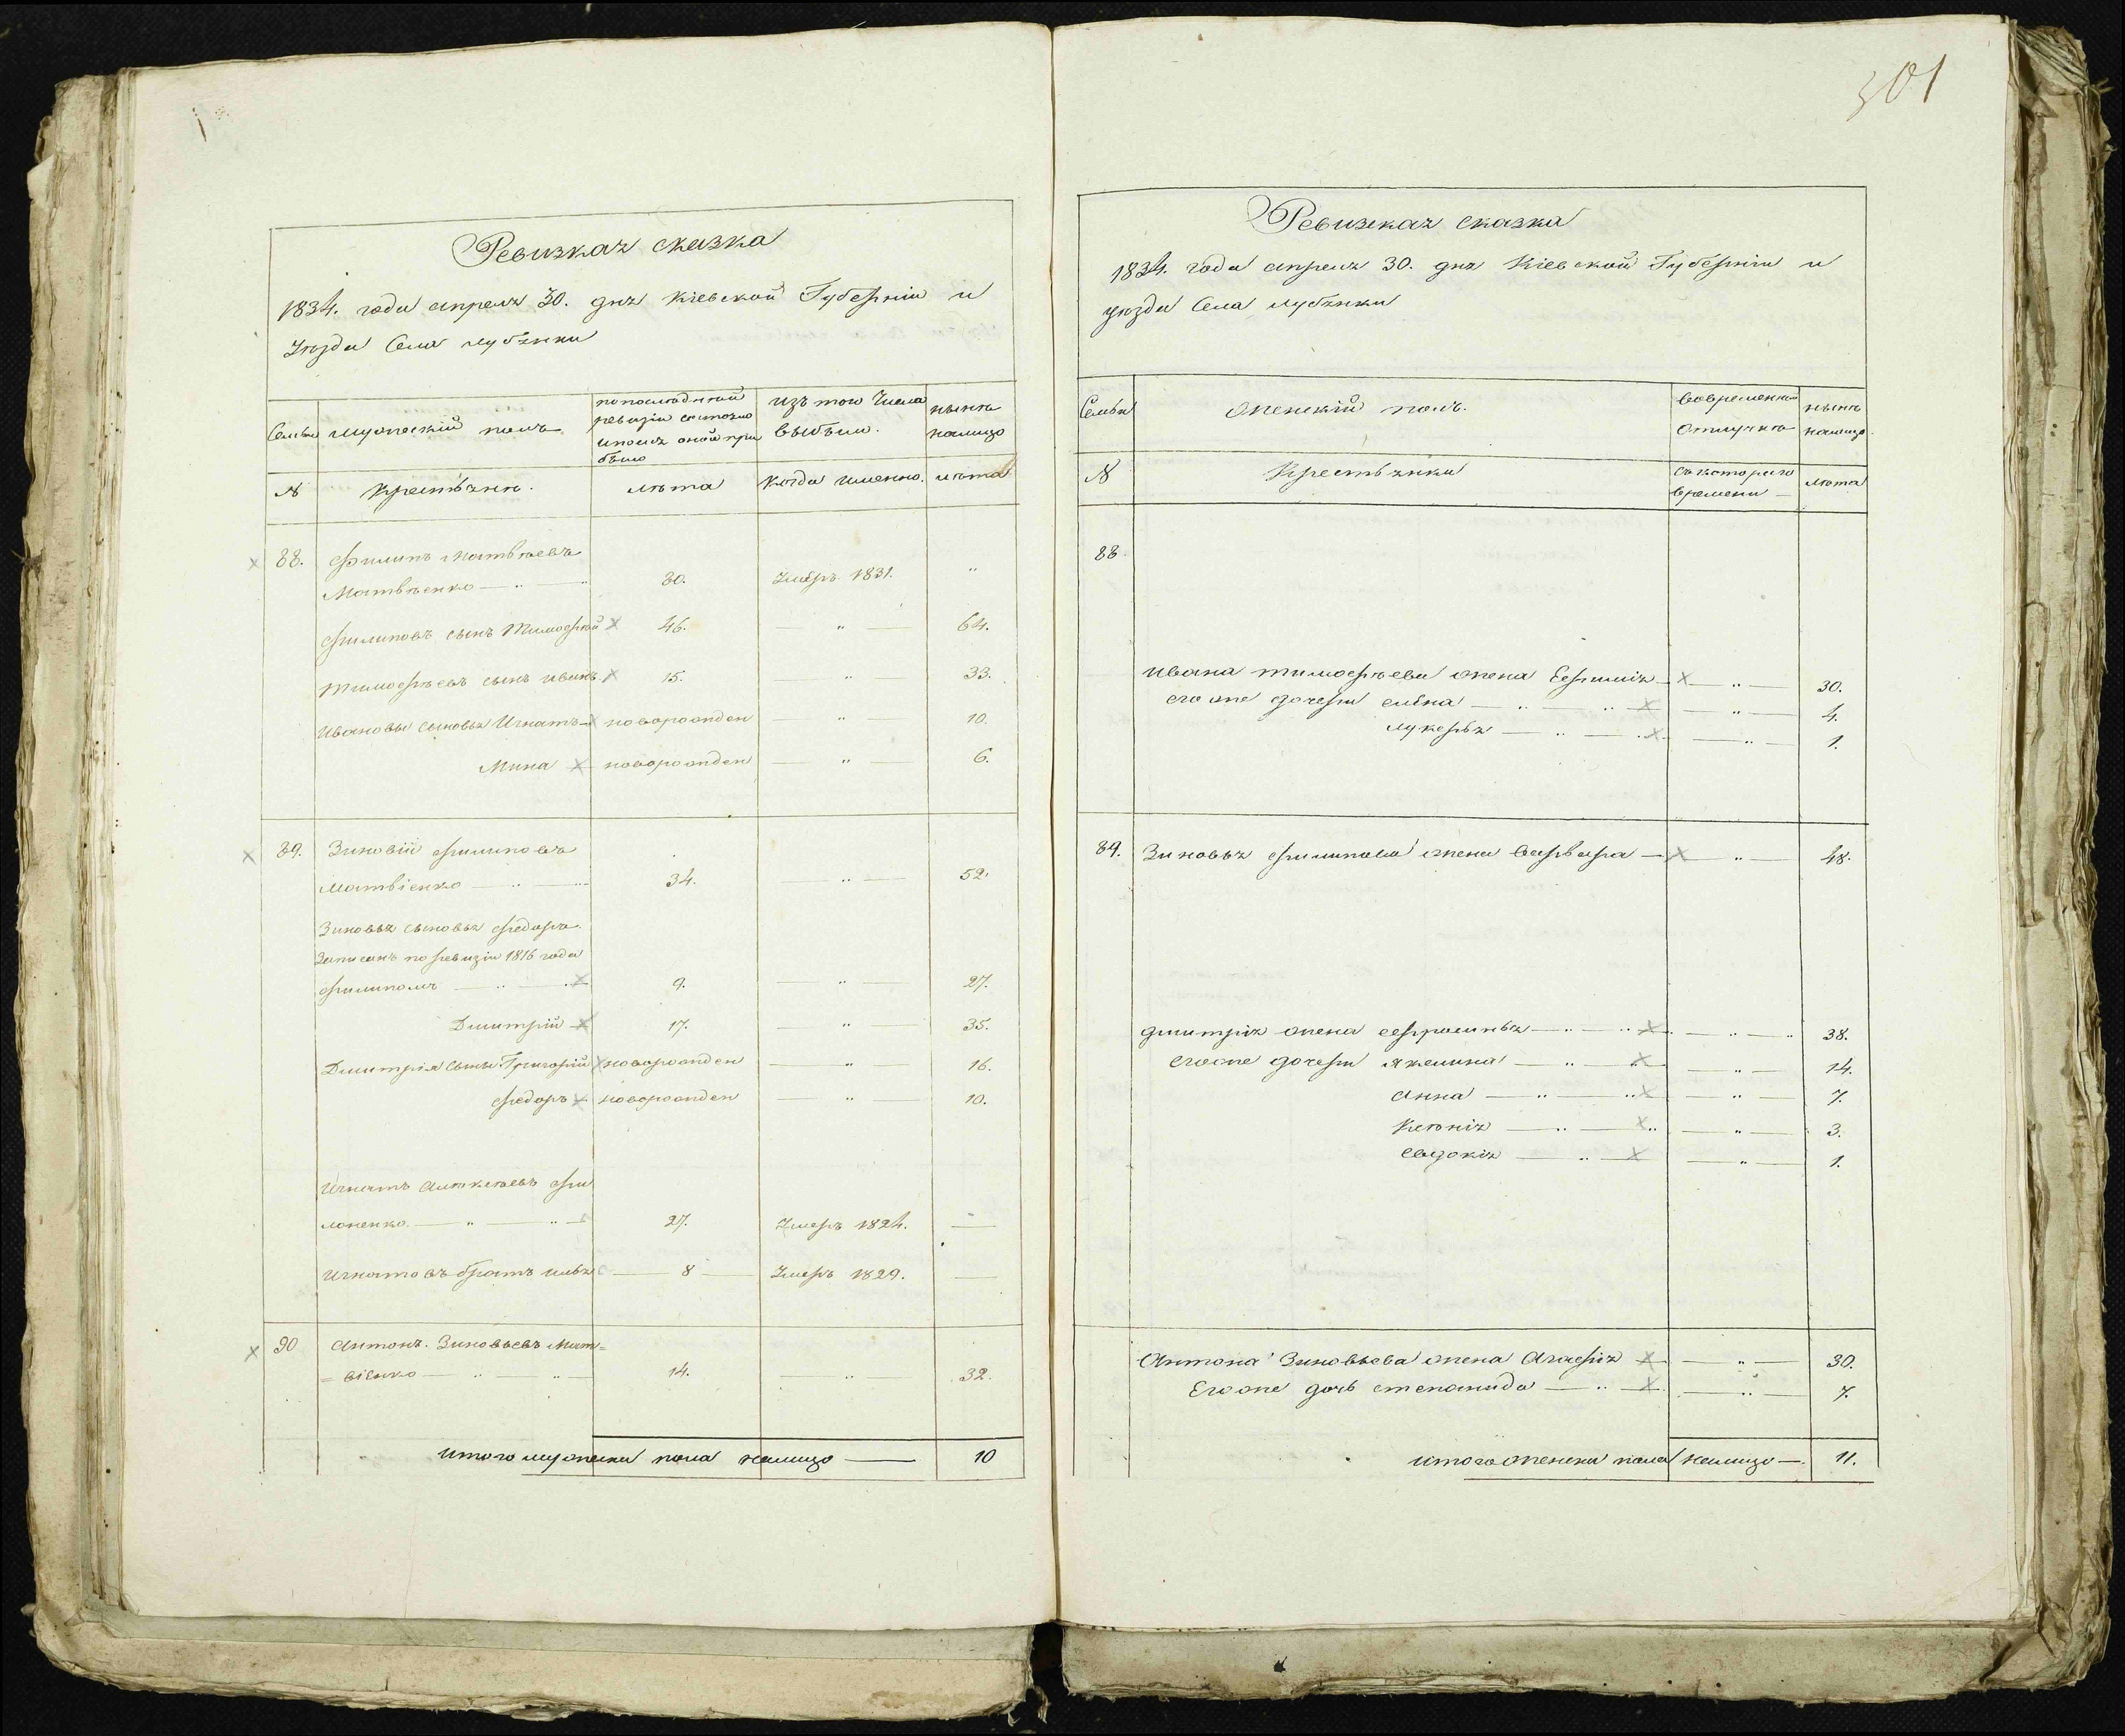 301
Ревизкая сказка
1834. года апреля 30. дня Кіевской Губерніи и
Уезда Села Лубянки
Семьи
мужескій полъ
по последней
ревизіи состояло
и после оной при
было
изъ того Числа
выбыли.
ныне
налицо
№
Крестьяне.
лета
Когда именно.
лета
88. Филипъ Матвеевъ
Матвеенко — 30. Умеръ. 1831. "
Филиповъ сынъ Тимофей 46. — " — 64.
Тимофеевъ сынъ иванъ 15. — " — 33.
Ивановы сыновья Игнатъ новорожден — " — 10.
Мина новорожден — " — 6.
89. Зиновій Филиповъ
Матвіенко — 34. — " — 52.
Зиновья сыновья Федоръ.
Записанъ по ревизіи 1816 года
Филипомъ — 9. " — 27.
Дмитрій 17. — " — 35.
Дмитрія сыны Григорій новорожден — " — 16.
Федоръ новорожден — " — 10.
Игнатъ Алексеевъ Фи
лоненко — " — 27. Умеръ 1824. —
Игнатовъ братъ илья — 8 — Умеръ 1829. —
90 Антонъ. Зиновьевъ Мат=
=віенко — 14. — " 32.
Итого мужеска пола налицо — 10
Ревизкая сказка
1834. года апреля 30. дня Кіевской Губерніи и
уезда Села лубянки
Семьи
женскій полъ.
вовременной
отлучке
ныне
налицо.
№
Крестьянки
съ котораго
времени —
лета
88
ивана тимофеева жена Ефимія — " — 30.
его же дочери елена — " — 4.
лукерья — " — 1.
89. Зиновья филипова жена варвара — " — 48.
дмитрія жена ефросинья — " — 38.
его же дочери — " — 14.
анна — " — 7.
Ксенія — " — 3.
евдокія — " — 1.
Антона Зиновьева жена Агафія — " — 30.
Его же дочь степанида — " — 7.
итого женска пола налицо — 11.